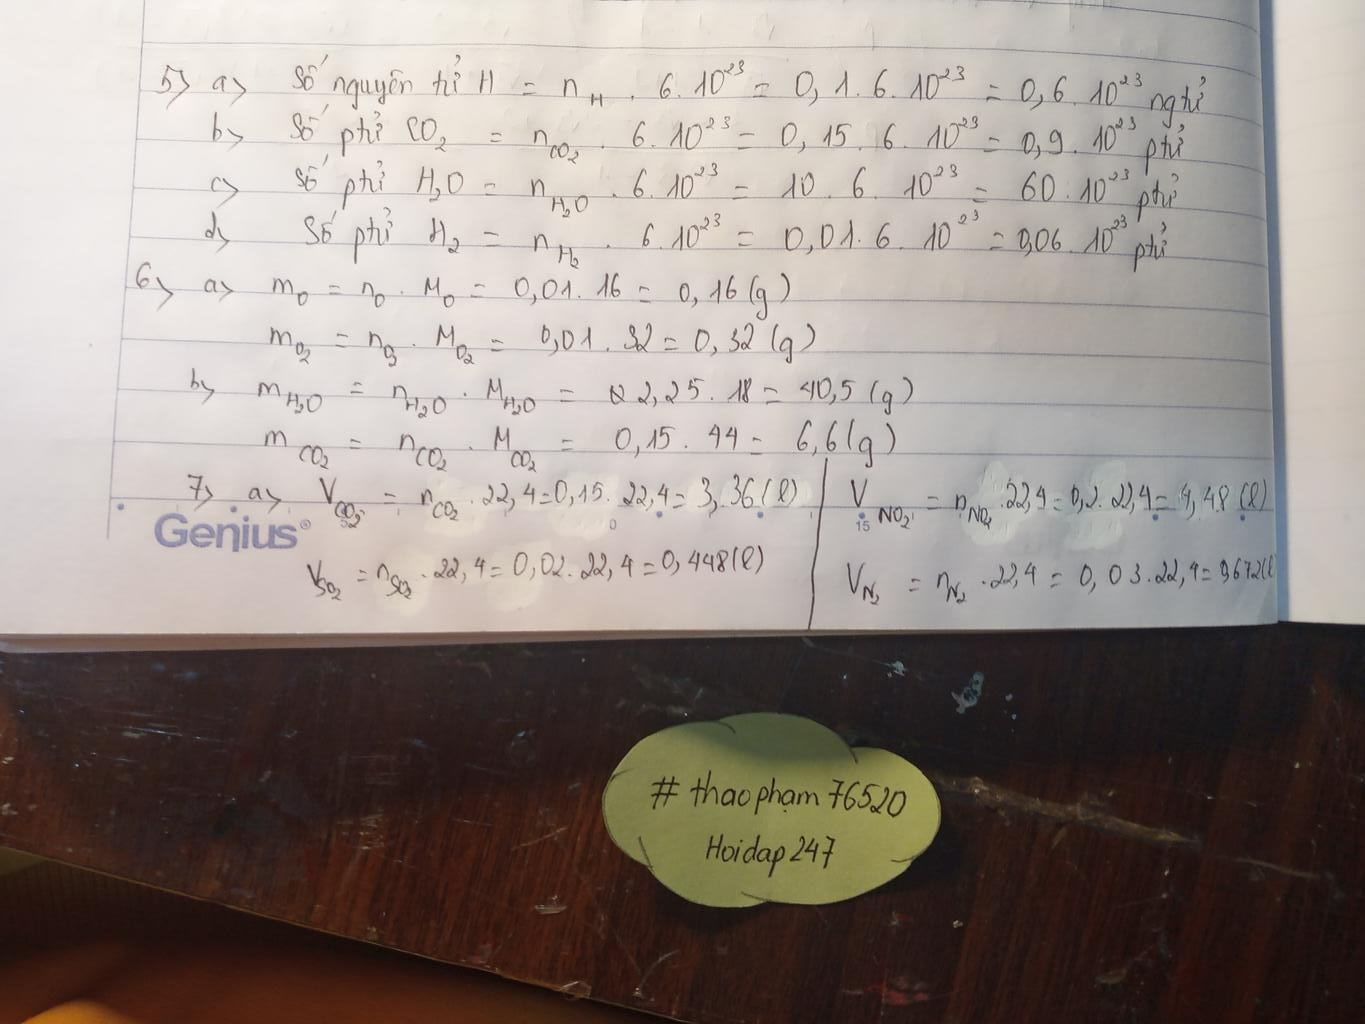 5) a) Số nguyên tử H = n_H . 6. 10²³ = 0,1. 6. 10²³ = 0,6. 10²³ ng tử
b) Số phtử CO₂ = n_CO₂ . 6. 10²³ = 0,15 . 6. 10²³ = 0,9. 10²³ ptử
c) Số phtử H₂O = n_H₂O . 6. 10²³ = 10 . 6. 10²³ = 60. 10²³ ptử
d) Số phtử H₂ = n_H₂ . 6. 10²³ = 0,01. 6. 10²³ = 0,06. 10²³ ptử
6) a) m_O = n_O . M_O = 0,01. 16 = 0,16 (g)
m_O₂ = n_O₂ . M_O₂ = 0,01. 32 = 0,32 (g)
b) m_H₂O = n_H₂O . M_H₂O = 2,25. 18 = 40,5 (g)
m_CO₂ = n_CO₂ . M_CO₂ = 0,15. 44 = 6,6 (g)
7) a) V_CO₂ = n_CO₂ . 22,4 = 0,15. 22,4 = 3,36 (l)
V_SO₂ = n_SO₂ . 22,4 = 0,02. 22,4 = 0,448 (l)
V_NO₂ = n_NO₂ . 22,4 = 0,2. 22,4 = 4,48 (l)
V_N₂ = n_N₂ . 22,4 = 0,03. 22,4 = 0,672 (l
Genius®
0
15
# thaophạm76520
Hoidap247